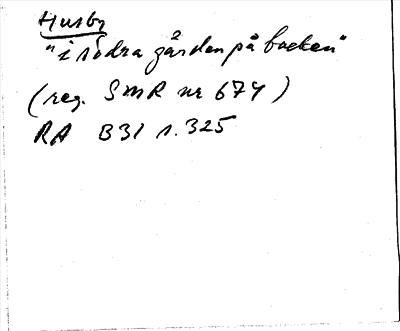 Husby
"i södra gården på backen"
(reg. SMR nr 674)
RA B31 s. 325